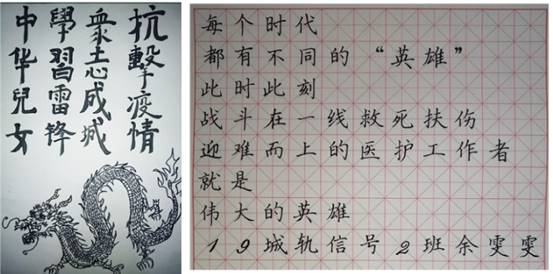 抗擊疫情
眾志成城
學習雷锋
中华兒女
每个时代
都有不同的“英雄”
此时此刻
战斗在一线救死扶伤
迎难而上的医护工作者
就是
伟大的英雄
19城轨信号2班余雯雯